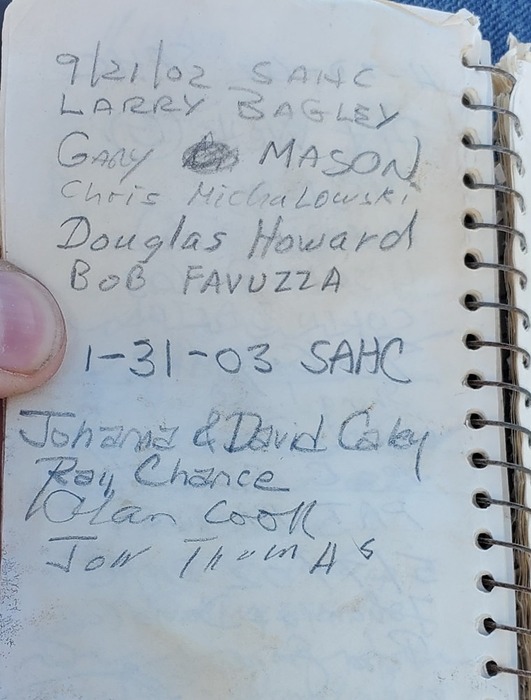 9/21/02 SAHC
LARRY BAGLEY
GARY MASON
Chris Michalowski
Douglas Howard
BOB FAVUZZA
1-31-03 SAHC
Johanna & David Caley
Ray Chance
Alan Cook
Jon Thomas